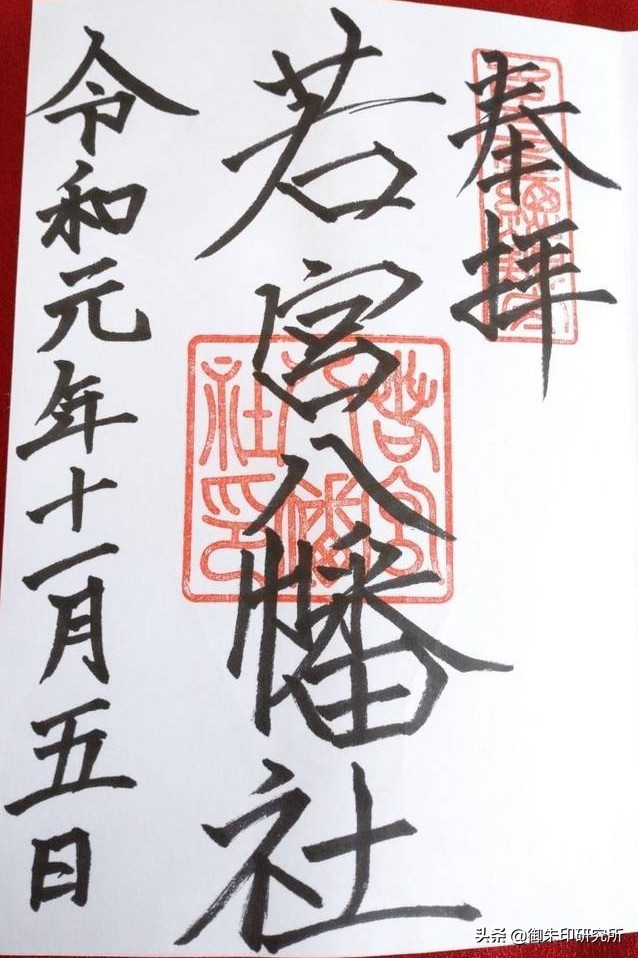 奉拝
若宮八幡社
若宮
八幡
社印
令和元年十一月五日
头条 @御朱印研究所